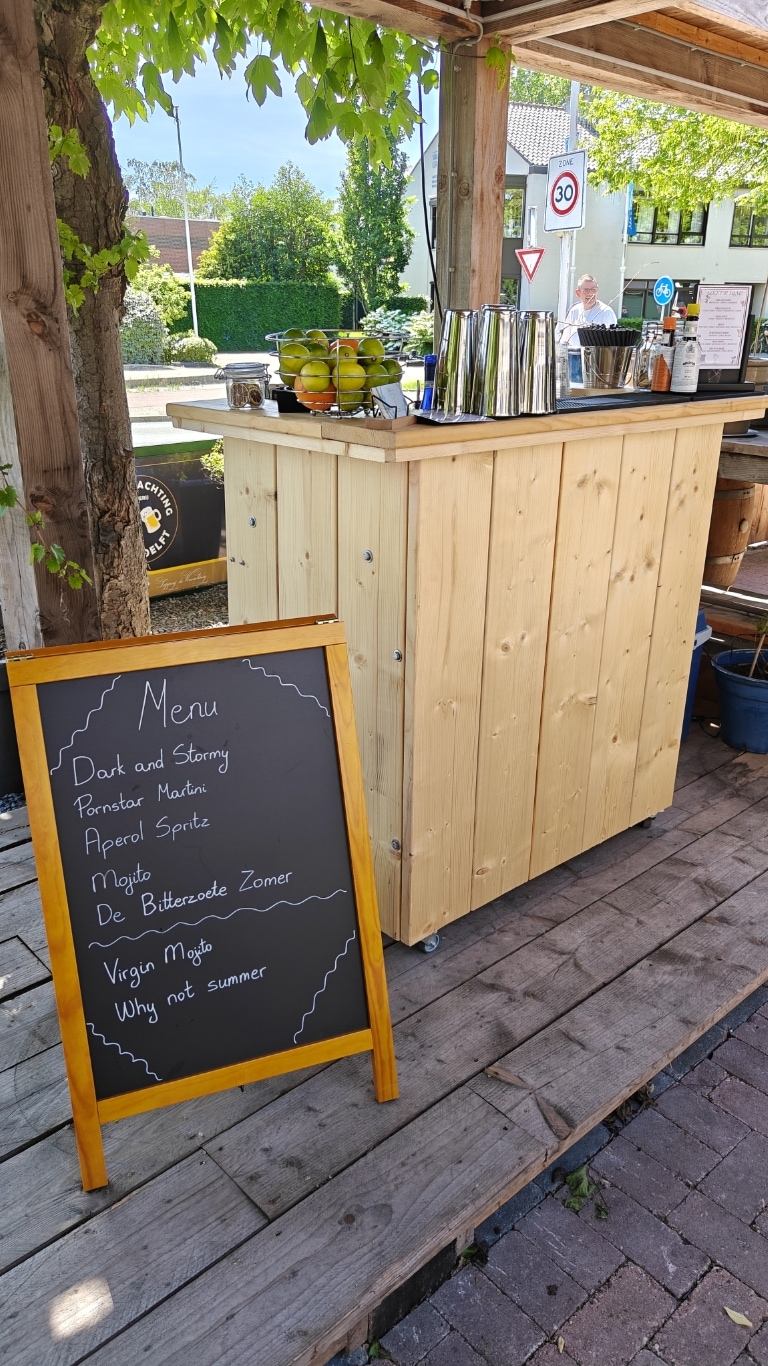 ZONE
30
ACHTING
DELFT
Menu
Dark and Stormy
Pornstar Martini
Aperol Spritz
Mojito
De Bitterzoete Zomer
Virgin Mojito
Why not summer